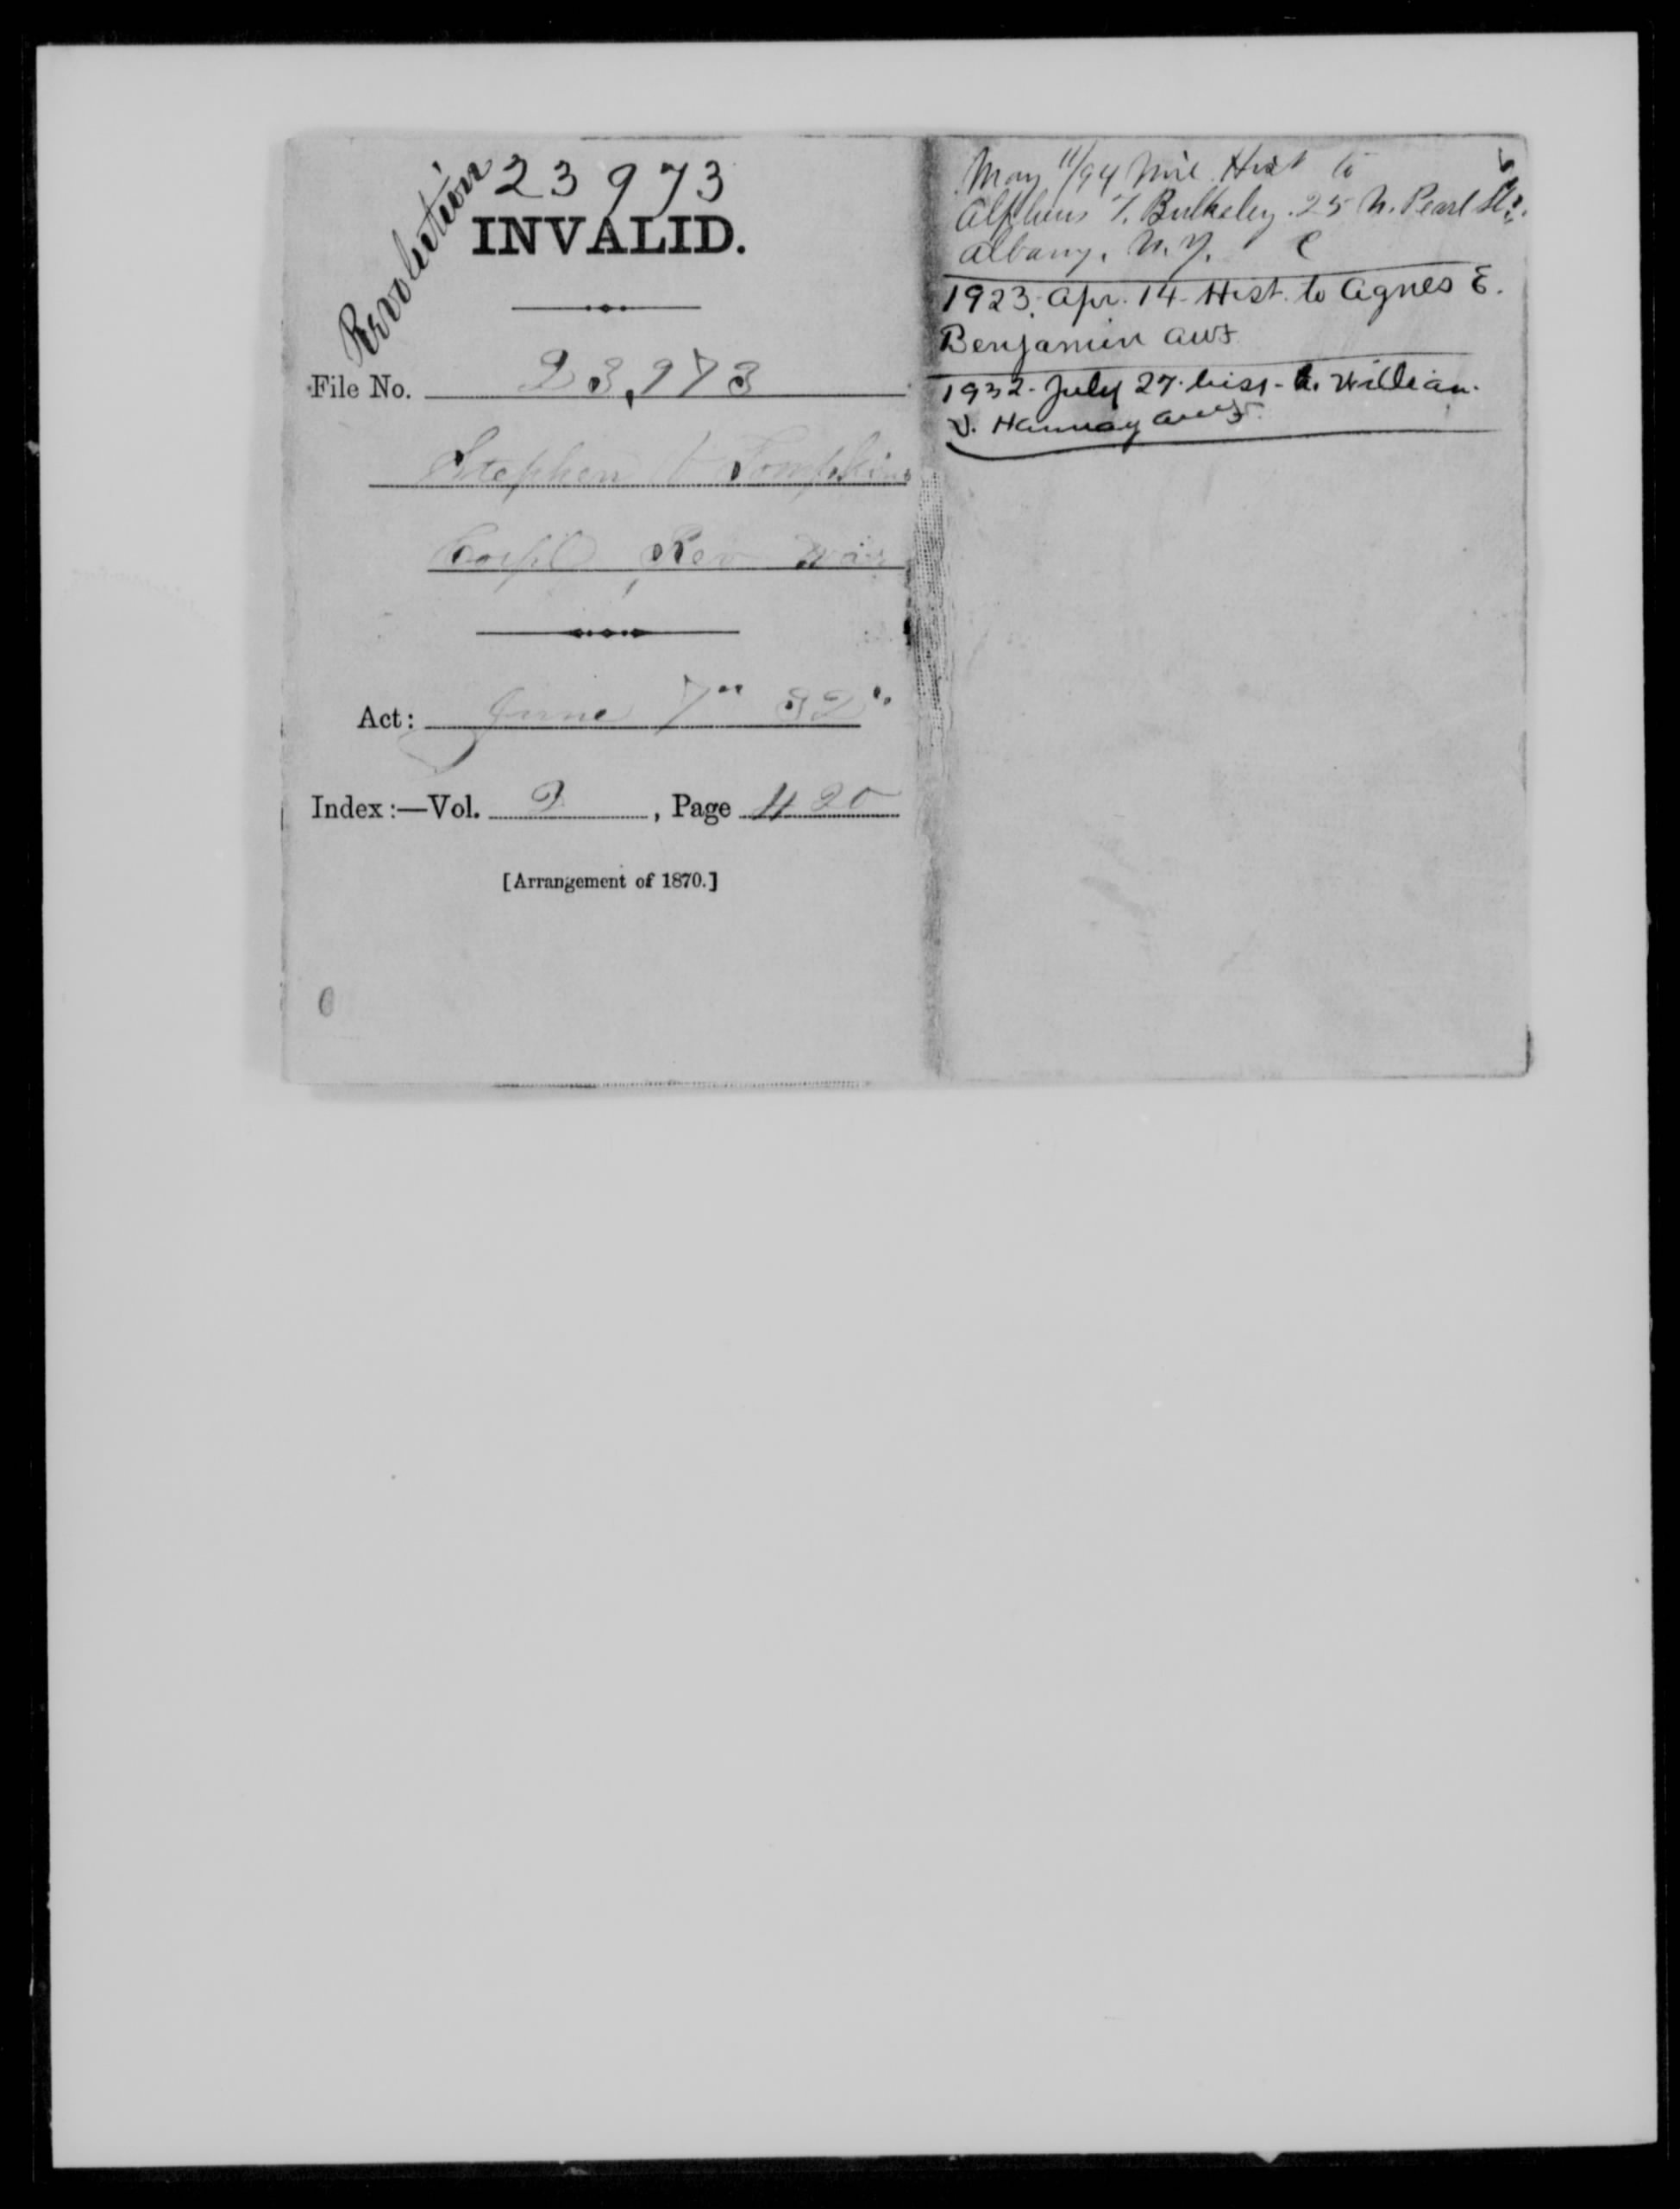 Revolution
23973
INVALID.
File No. 23,973
Stephen Tompkins
Corpl Rev War
Act: June 7" 32"
Index:—Vol. 2, Page 420
[Arrangement of 1870.]
May 11/94 Mil Hist to
Alpheus T. Bulkeley. 25 N. Pearl St.
Albany, N.Y. C
1923. Apr. 14- Hist. to Agnes E.
Benjamin awf
1932- July 27- hist- William
V. Hannay awf